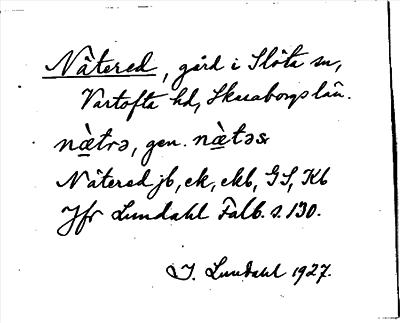 Nätered, gård i Slöta sn,
Vartofta hd, Skaraborgs län.
nä̀trə, gen. nä̀təs
Nätered jb, ek, ekb, GS, Kb
Jfr Lundahl Falb. s. 130.
I. Lundahl 1927.